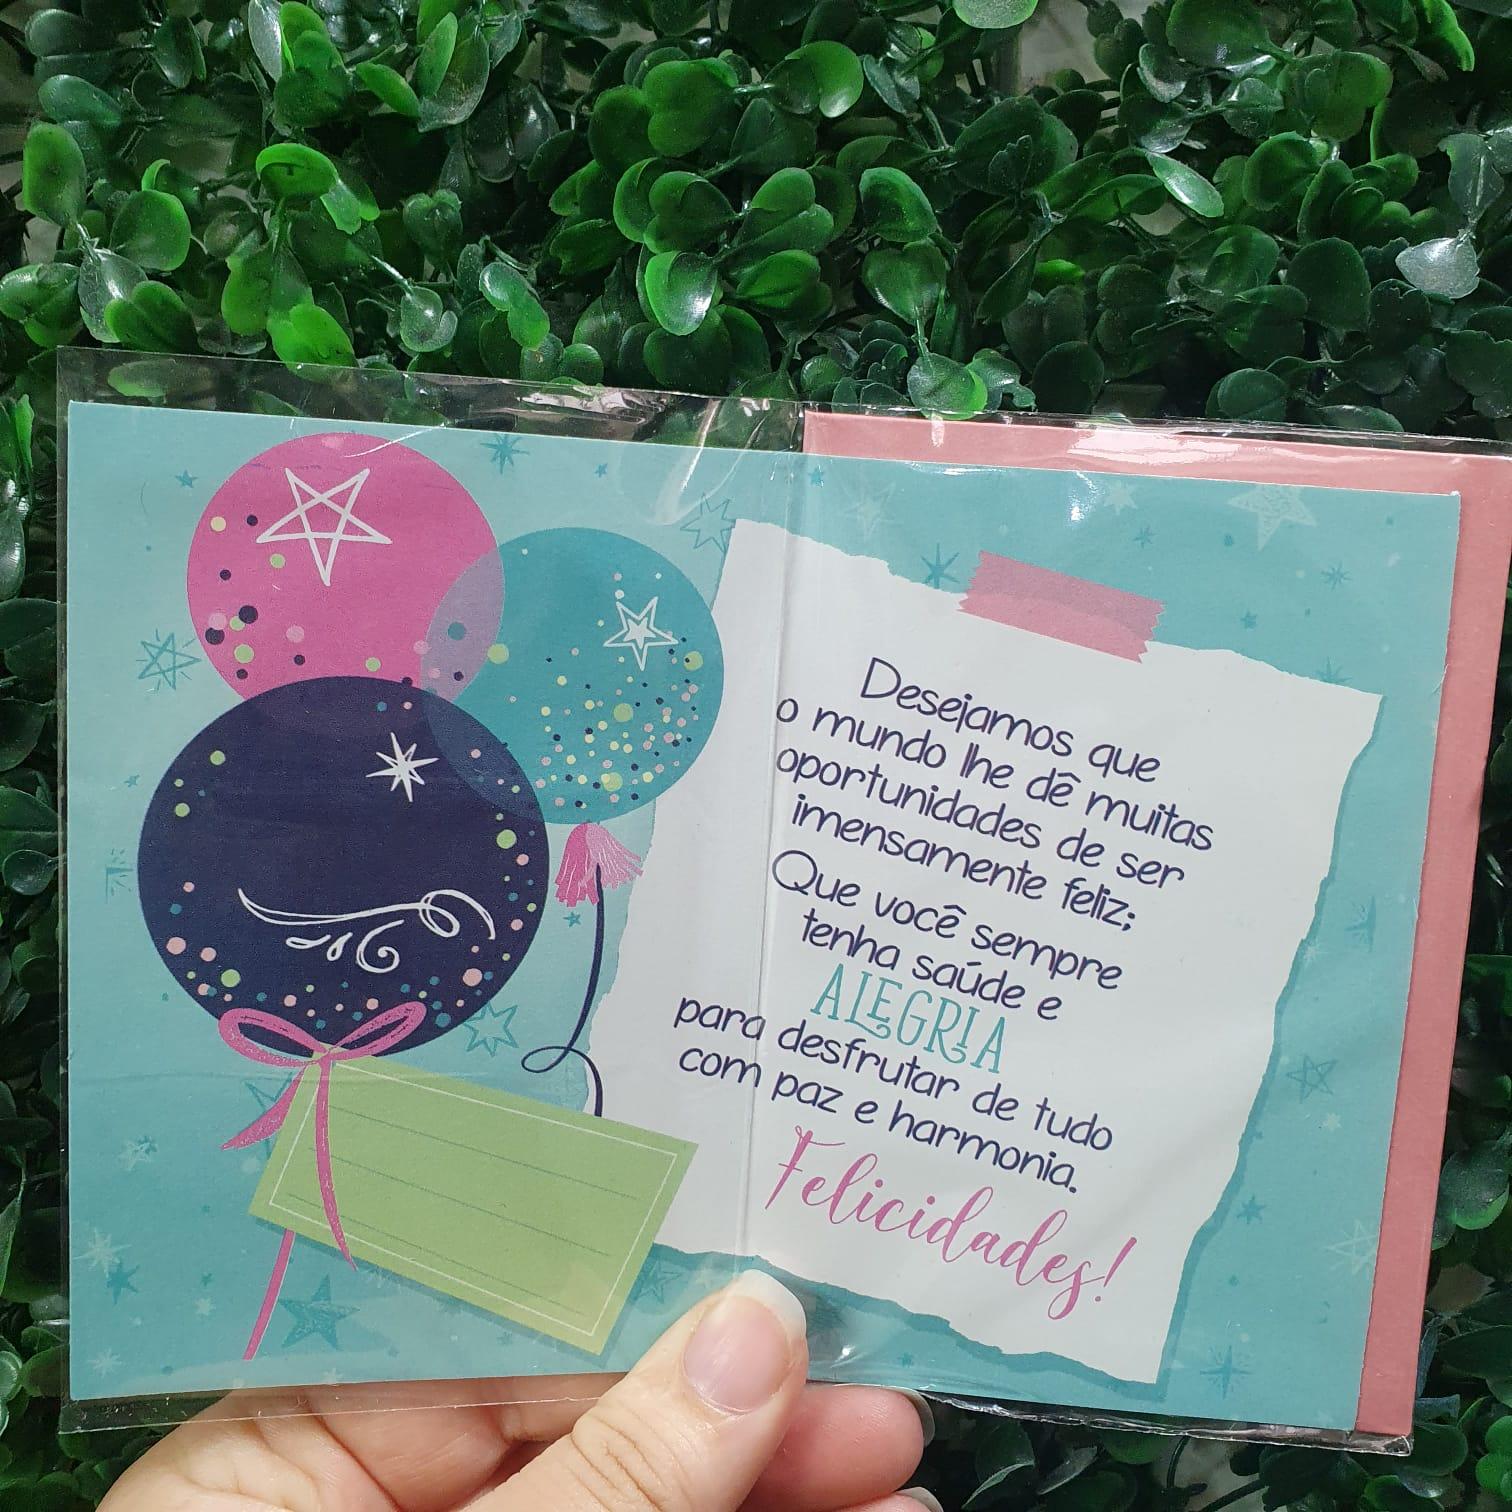 Desejamos que
o mundo lhe dê muitas
oportunidades de ser
imensamente feliz;
Que você sempre
tenha saúde e
ALEGRIA
para desfrutar de tudo
com paz e harmonia.
Felicidades!